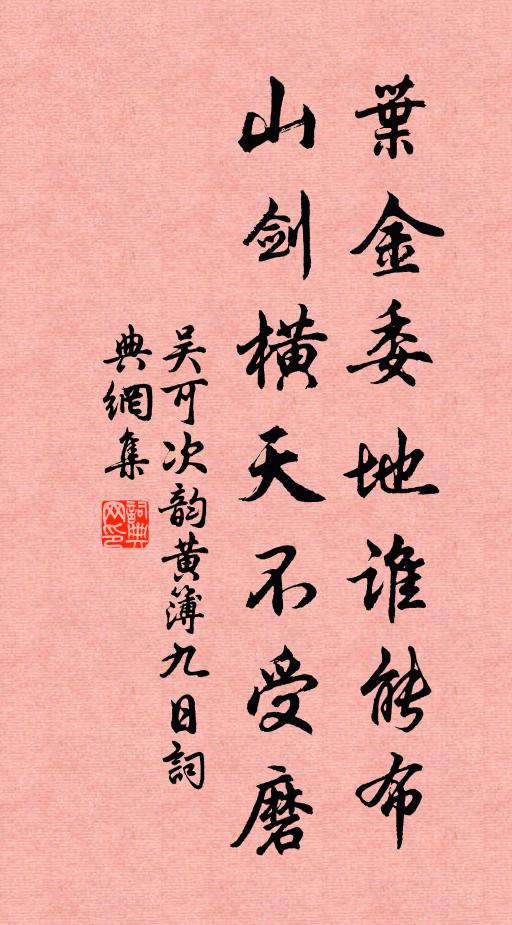 葉金委地谁能布
山剑橫天不受磨
吴可次韵黄簿九日詞
典網集
詞典網印